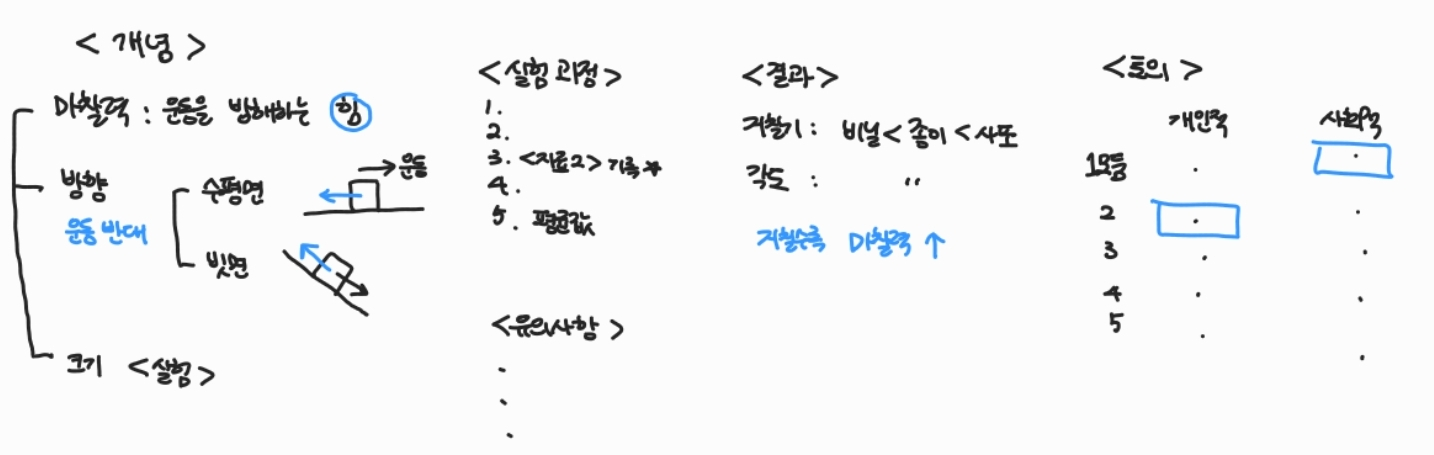 <개념>
마찰력 : 운동을 방해하는 힘
방향
운동 반대
수평면
→운동
빗면
크기 <실험>
<실험 과정>
1.
2.
3. <자료2> 기록*
4.
5. 평균값
<유의사항>
<결과>
거칠기 : 비닐 < 종이 < 사포
각도 : "
거칠수록 마찰력 ↑
<토의>
개인적 사회적
1모둠
2
3
4
5